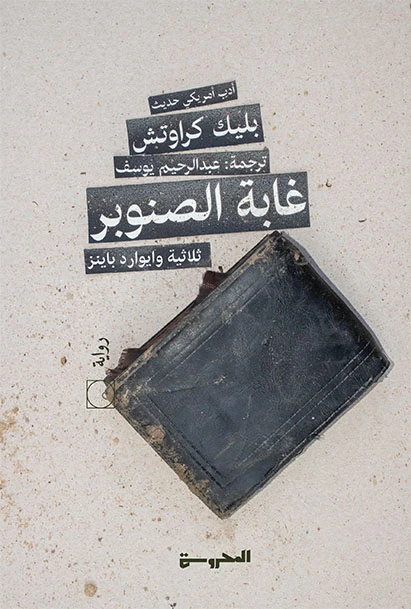 أدب أمريكي حديث
بليك كراوتش
ترجمة: عبدالرحيم يوسف
غابة الصنوبر
ثلاثية وايوارد باينز
رواية
المحروسة